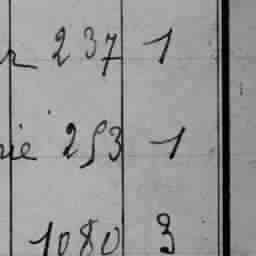 237 1
253 1
1080 3